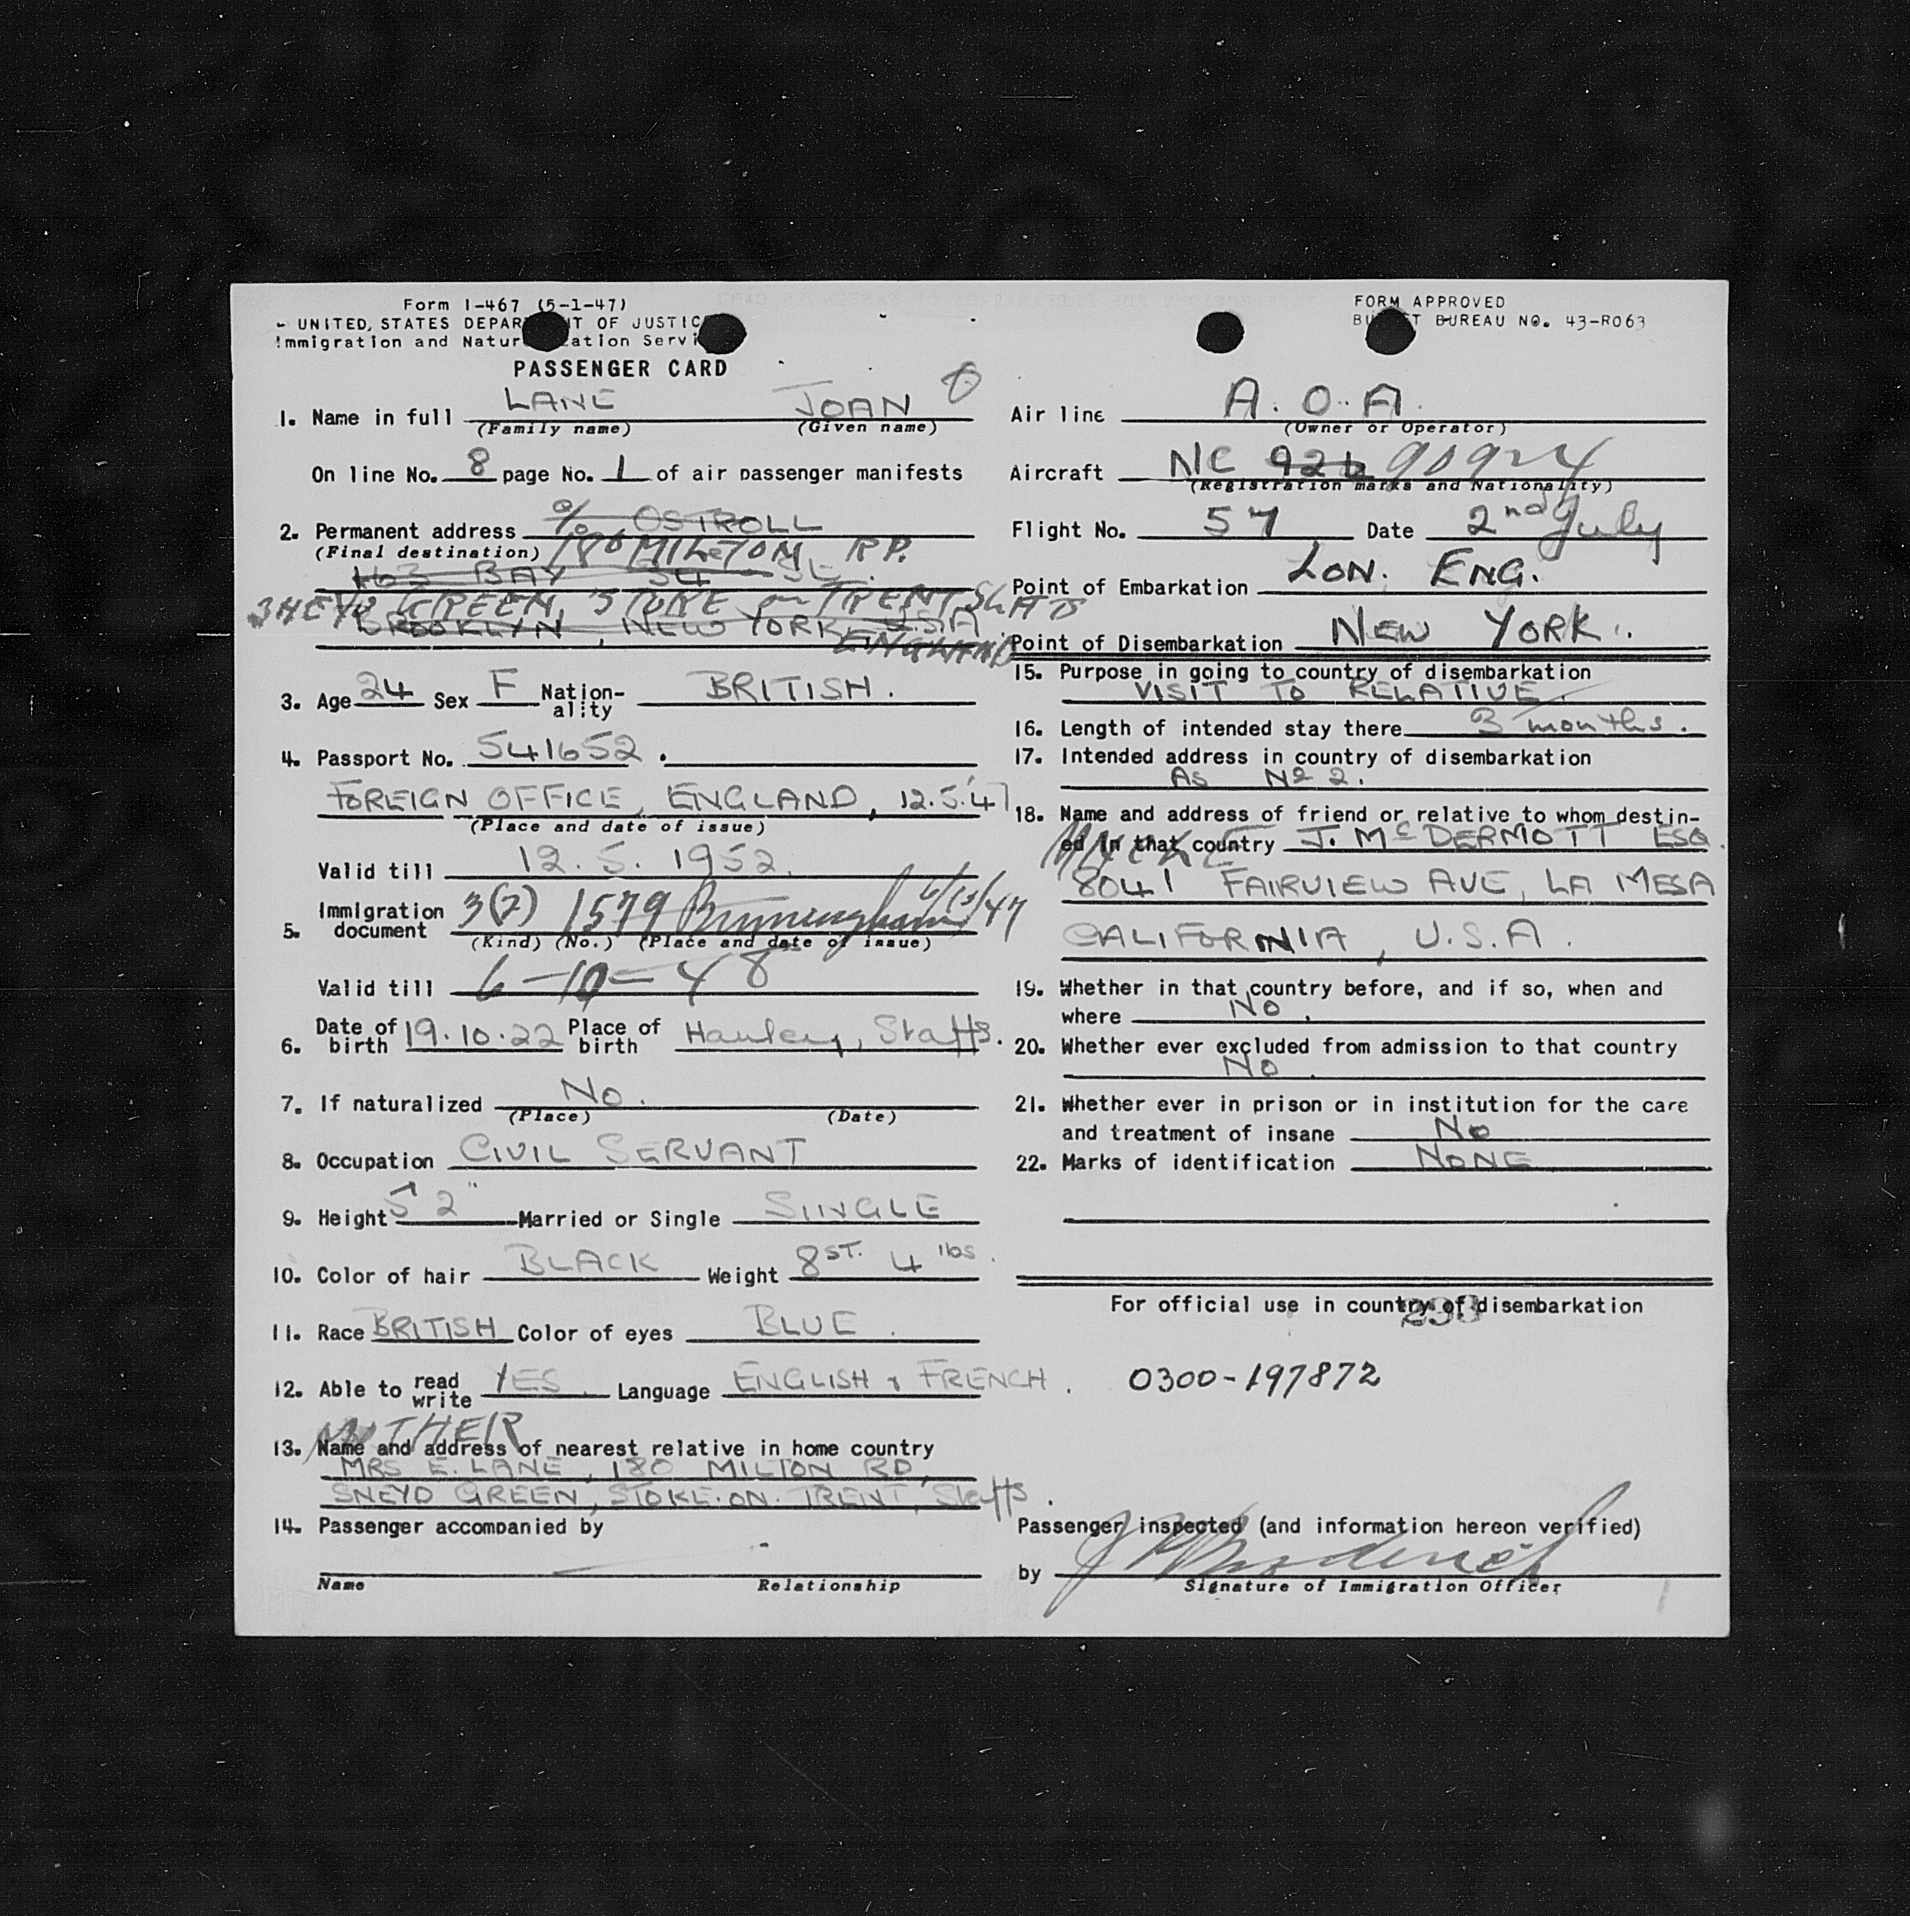 Form I-467 (5-1-47)
UNITED STATES DEPAR T OF JUSTIC
Immigration and Natur ation Servi
PASSENGER CARD
FORM APPROVED
BU T BUREAU NO. 43-R063
1. Name in full LANE JOAN
(Family name) (Given name)
On line No. 8 page No. 1 of air passenger manifests
2. Permanent address c/o OSTROLL
(Final destination) 180 MILTON RD.
163 BAY 34 ST.
SNEYD GREEN, STOKE on TRENT STAFFS
BROOKLYN, NEW YORK, USA
ENGLAND
3. Age 24 Sex F Nation-ality BRITISH.
4. Passport No. 541652.
FOREIGN OFFICE, ENGLAND, 12.5.47
(Place and date of issue)
Valid till 12.5.1952.
5. Immigration document 3(2) 1579 Birmingham 6/13/47
(Kind) (No.) (Place and date of issue)
Valid till 6-10-48
6. Date of birth 19.10.22 Place of birth Hanley, Staffs.
7. If naturalized No.
(Place) (Date)
8. Occupation CIVIL SERVANT
9. Height 5' 2" Married or Single SINGLE
10. Color of hair BLACK Weight 8ST. 4 lbs.
11. Race BRITISH Color of eyes BLUE.
12. Able to read write YES. Language ENGLISH & FRENCH.
MOTHER
13. Name and address of nearest relative in home country
MRS E. LANE, 180 MILTON RD,
SNEYD GREEN, STOKE.ON.TRENT, Staffs.
14. Passenger accompanied by
Name Relationship
Air line A.O.A.
(Owner or Operator)
Aircraft NC 90924
(Registration marks and Nationality)
Flight No. 57 Date 2nd July
Point of Embarkation LON. ENG.
Point of Disembarkation NEW YORK.
15. Purpose in going to country of disembarkation
VISIT TO RELATIVE.
16. Length of intended stay there 3 months.
17. Intended address in country of disembarkation
As No 2.
18. Name and address of friend or relative to whom destin-
ed in that country J. McDERMOTT ESQ.
UNCLE
8041 FAIRVIEW AVE, LA MESA
CALIFORNIA, U.S.A.
19. Whether in that country before, and if so, when and
where No.
20. Whether ever excluded from admission to that country
No.
21. Whether ever in prison or in institution for the care
and treatment of insane No
22. Marks of identification NONE
For official use in country of disembarkation
293
0300-197872
Passenger inspected (and information hereon verified)
by
Signature of Immigration Officer